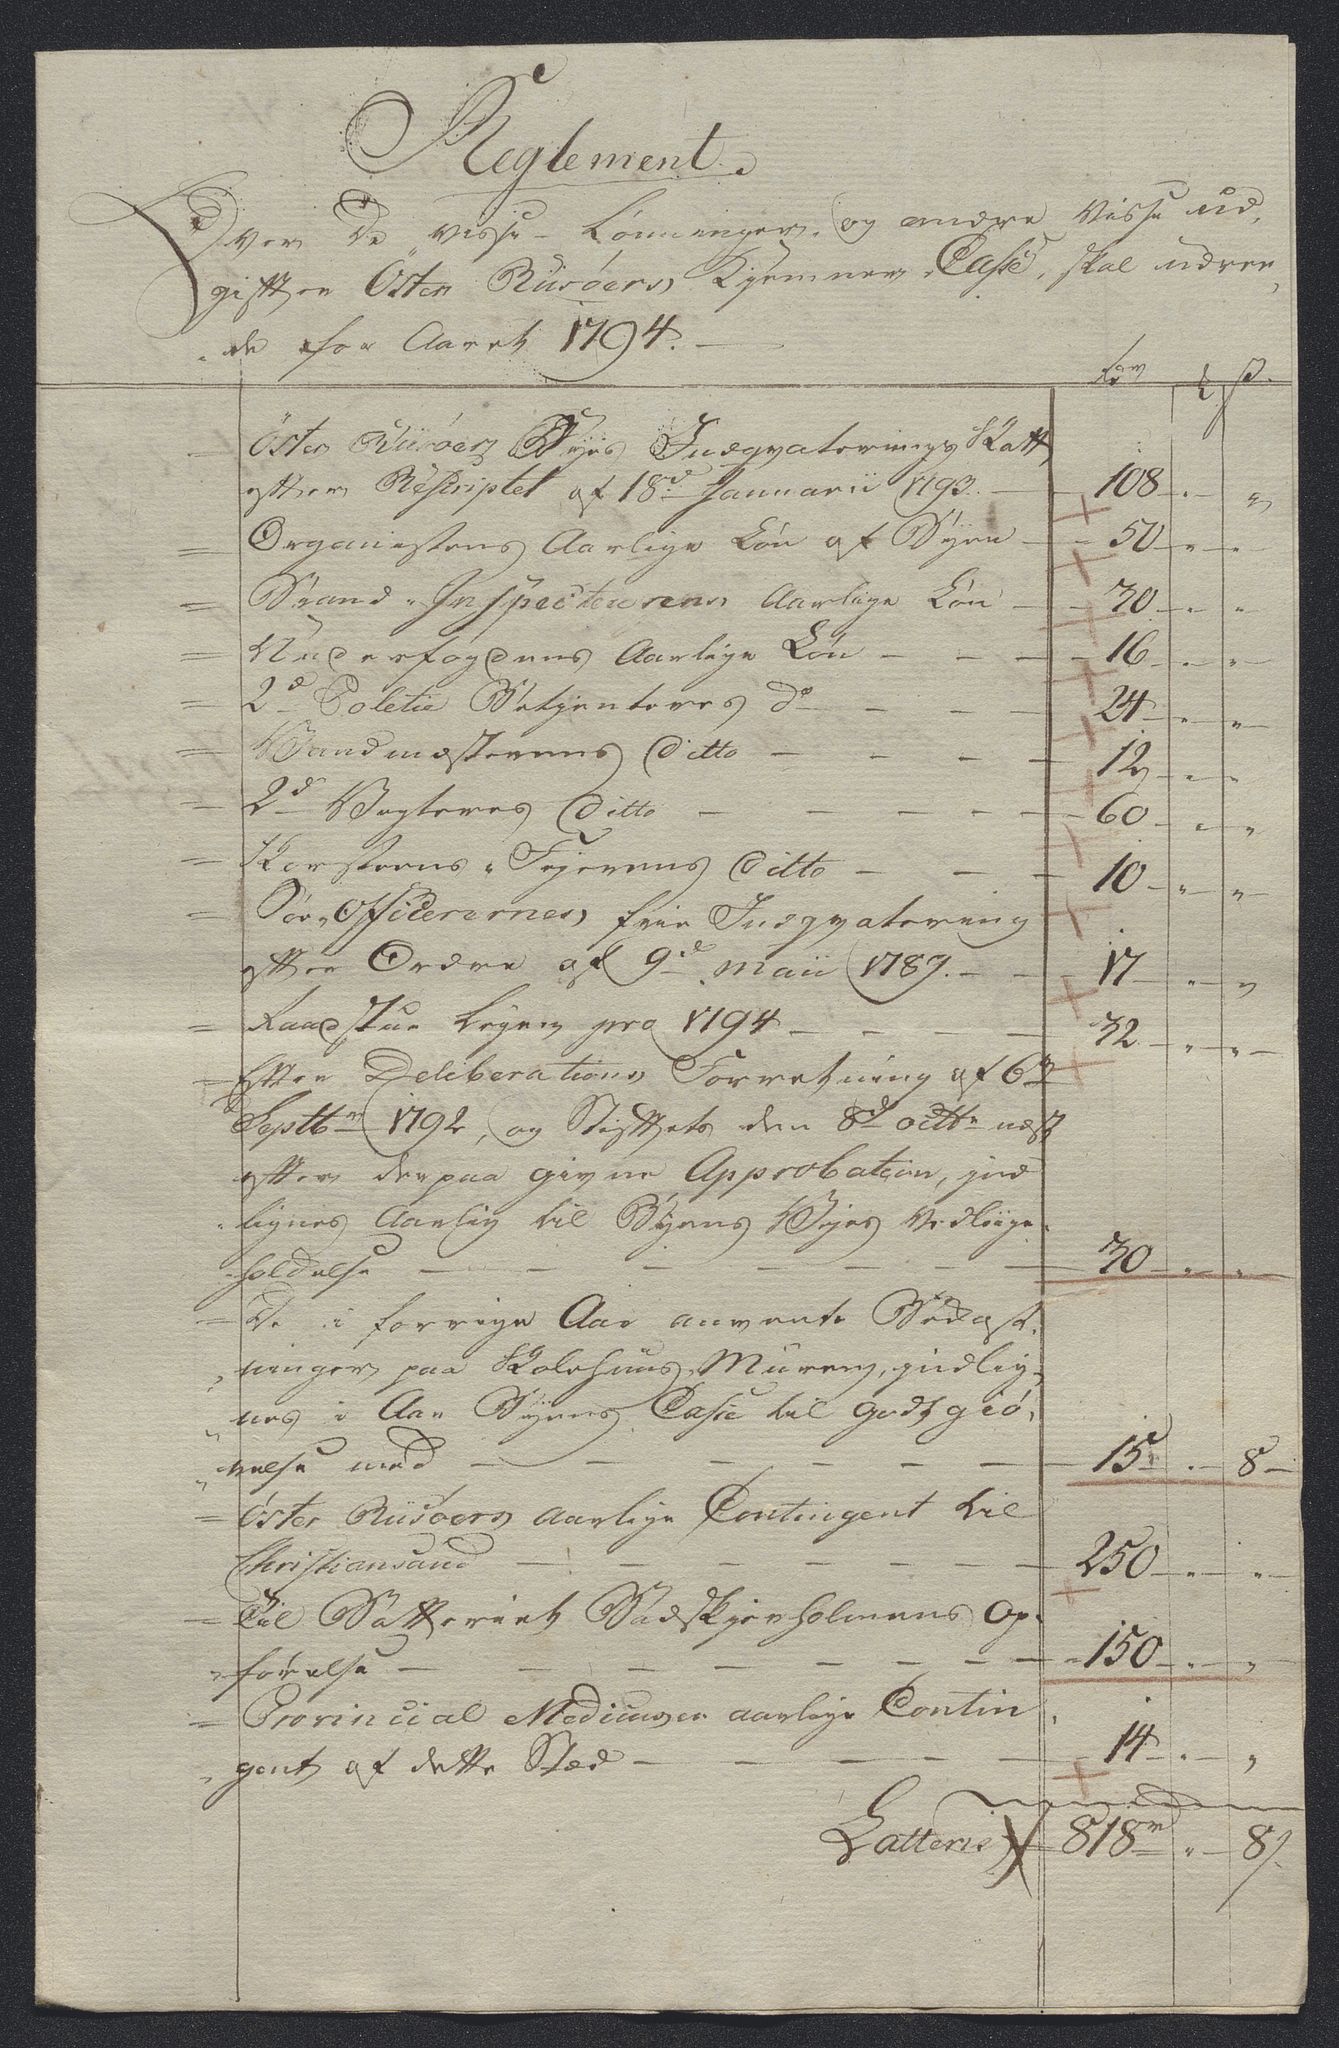 Reglement.
Over De visse Lønninger og andre Visse ud,
gifter Öster Riisøers Kjemner Casse, skal udree,
de for Aaret 1794.
Rdr ß.
Öster Riisøers Byes Indqvaterings Skatt
efter Rescriptet af 18d Januarii 1793. 108 - "
Organistens Aarlige Løn af Byen 50 " "
Brand-Inspecteurens Aarlige Løn 30 " "
Underfogdens Aarlige Løn 16 " "
2d Politie Betjenteres do 24 " "
Vandmesterens Ditto 12 " "
2d Vegteres Ditto 60 " "
Skorsteens-Fejerens Ditto 10 " "
Søe-Officerernes frie Indqvatering
efter Ordre af 9d Maii 1789. 17 " "
Raadstue Leyen pro 1794 32 " "
Efter Deliberations Forretning af 6te
Septbr 1792, og Stiftets den 8d octbr næst
efter derpaa givne Approbation, ind
lignes Aarlig til Byens Vejes Vedliige
holdelse 30 " "
De i forrige Aar anvente Bekost
ninger paa Skolehuus Muren, indlig,
nes i Aar Byens Casse til godtgiø,
relse med 15 - 8
Öster Riisøers aarlige Contingent til
Christiansand 250 " "
Til Batteriet Holmens Op
førelse 150 " "
Provincial Medicus aarlige Contin
gent af dette Sted 14 " "
Latterie 818r " 8ß.